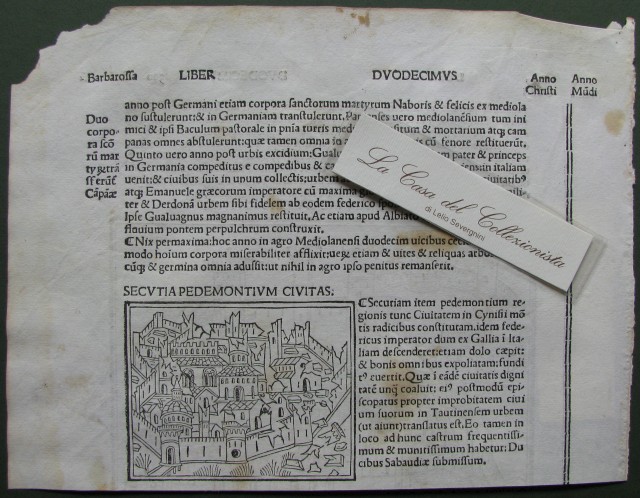 Barbarossa LIBER DVODECIMVS Anno Christi Anno Mūdi
anno post Germani etiam corpora sanctorum martyrum Naboris & felicis ex mediola
no sustulerunt: & in Germaniam transtulerunt. uero mediolanēsium tum ini
mici & ipsi Baculum pastorale in pnia turris & mortarium atq; cam
panas omnes abstulerunt: quæ tamen omnia in cū fenore restituerūt.
Quinto uero anno post urbis excidium: pater & princeps
in Germania compeditus e compedibus & ensin italiam
uenit: & ciuibus suis in unum collectis: urbem
atq; Emanuele græcorum imperatore cū maxima
ter & Derdonā urbem sibi fidelem ab eodem federico
Ipse Gualuagnus magnanimus restituit. Ac etiam apud
fluuium pontem perpulchrum construxit.
⁋Nix permaxima: hoc anno in agro Mediolanensi duodecim uicibus
modo hoīum corpora miserabiliter afflixit: uerū etiam & uites & reliquas
cūq; & germina omnia adussit: ut nihil in agro ipso penitus remanserit.
Duo
corpo
ra scō
rū mar
tyȩ trā
sferūt̄
Cāpāæ
SECVTIA PEDEMONTIVM CIVITAS.
⁋Secutiam item pedemontium re
gionis tunc Ciuitatem in Cynisii mō
tis radicibus constitutam. idem fede
ricus imperator dum ex Gallia ī Ita
liam descenderet: etiam dolo cæpit:
& bonis omnibus expoliatam: fundi
t' euertit. Quæ ī eādē ciuitatis digni
tatē unq̄ coaluit: ei' postmodū epi
scopatus propter improbitatem ciui
um suorum in Taurinensem urbem
(ut aiunt) translatus est. Eo tamen in
loco ad hunc castrum frequentissi
mum & munitissimum habetur: Du
cibus Sabaudiæ submissum.
La Casa del Collezionista
di Lelio Severgnini